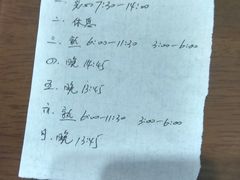 一. 7:30-14:00
二. 休息
三. 6:00-11:30 3:00-6:00
四. 晚 14:45
五. 晚 13:45
六. 6:00-11:30 3:00-6:00
日. 晚 13:45